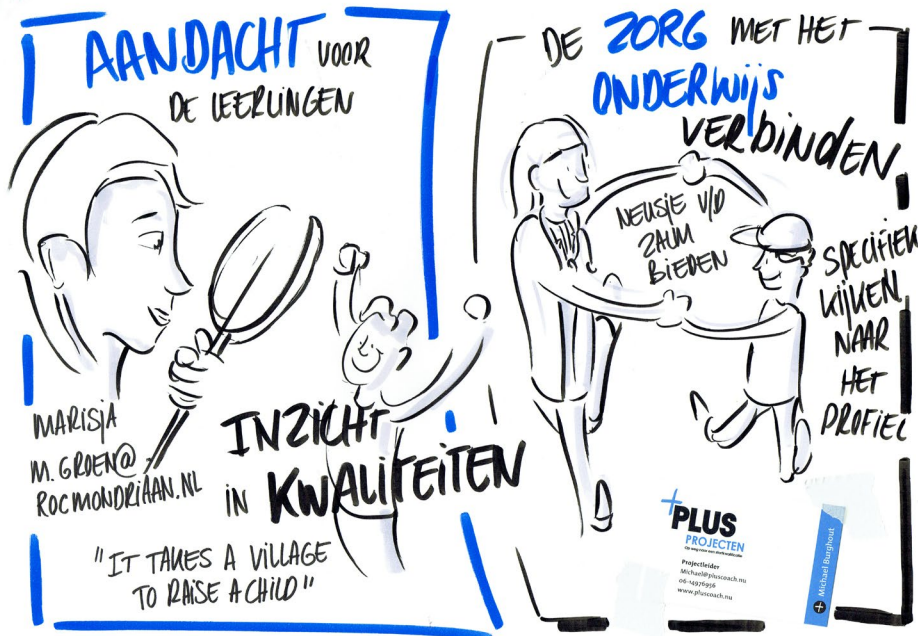 AANDACHT VOOR
DE LEERLINGEN
MARISJA
M.GROEN@
ROCMONDRIAAN.NL
INZICHT
IN KWALITEITEN
"IT TAKES A VILLAGE
TO RAISE A CHILD"
DE ZORG MET HET
ONDERWIJS
VERBINDEN
V/D
BIEDEN
SPECIFIEK
KIJKEN
NAAR
HET
PROFIEL
+PLUS
PROJECTEN
Op weg naar een startkwalificatie
Projectleider
Michael@pluscoach.nu
06-14976956
www.pluscoach.nu
Michael Burghout